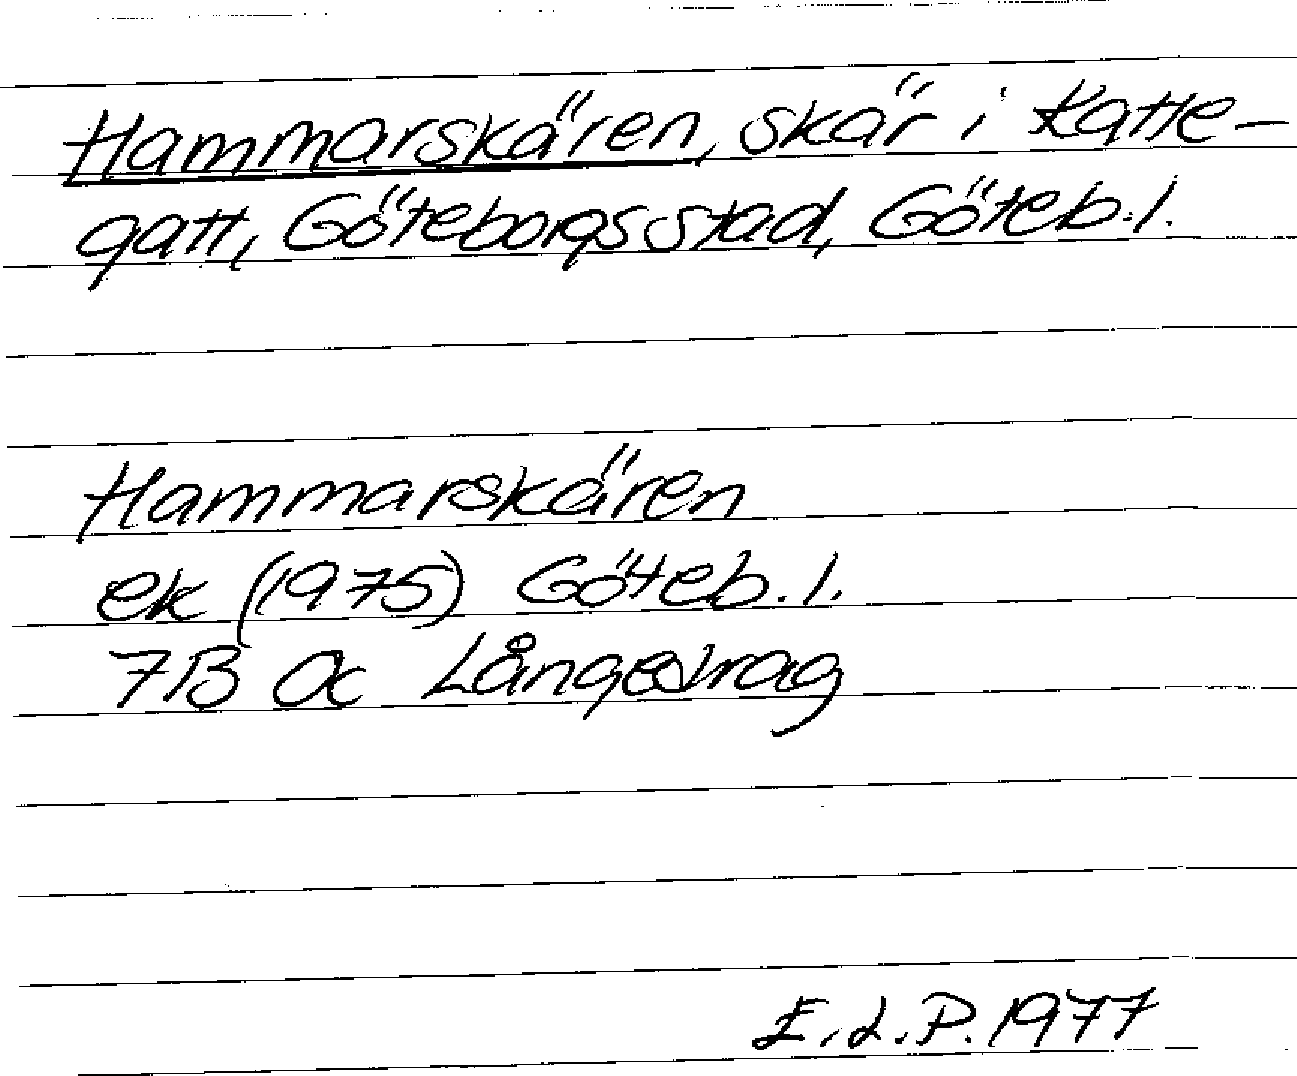 Hammarskären, skär i Katte-
gatt, Göteborgs stad, Göteb. l.
Hammarskären
ek (1975) Göteb. l.
7B 0c Långedrag
E.L.P. 1977